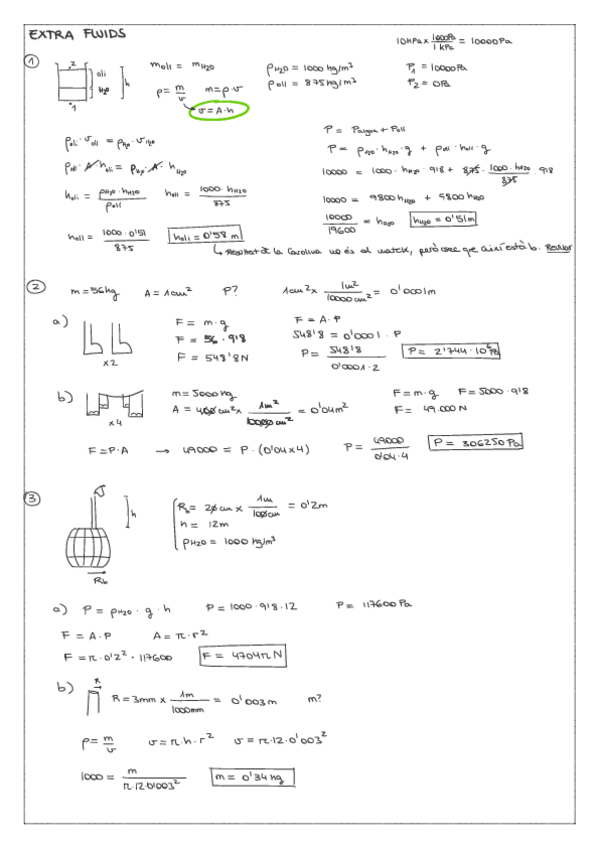 EXTRA FLUIDS
10kPa x 1000Pa / 1 kPa = 10000Pa
1
2 oli H2O h 1
m oli = m H2O
ρ H2O = 1000 kg/m³
P1 = 10000Pa
ρ = m/v m = ρ·v
ρ oli = 875 kg/m³
P2 = 0Pa
v = A·h
ρoli · voli = ρH2O · vH2O
P = Paigua + Poli
ρoli · A · holi = ρH2O · A · hH2O
P = ρH2O · hH2O · g + ρoli · holi · g
10000 = 1000 · hH2O · 9'8 + 875 · 1000 · hH2O / 875 · 9'8
holi = ρH2O · hH2O / ρoli
holi = 1000 · hH2O / 875
10000 = 9800 hH2O + 9800 hH2O
10000 / 19600 = hH2O
hH2O = 0'51m
holi = 1000 · 0'51 / 875
holi = 0'58 m
↳ Resultat de la Carolina no és el mateix, però crec que així està b. Revisar
2
m = 56kg A = 1cm² P?
1cm² x 1m² / 10000 cm² = 0'0001m
a)
x2
F = m·g
F = 56 · 9'8
F = 548'8N
F = A·P
548'8 = 0'0001 · P
P = 548'8 / 0'0001·2
P = 2'744·10⁶ Pa
b)
x4
m = 5000kg
A = 400cm² x 1m² / 10000cm² = 0'04m²
F = m·g F = 5000 · 9'8
F = 49.000 N
F = P·A → 49000 = P · (0'04x4)
P = 49000 / 0'04·4
P = 306250 Pa
3
h
Rb
Rb = 20cm x 1m / 100cm = 0'2m
h = 12m
ρH2O = 1000 kg/m³
a) P = ρH2O · g · h P = 1000 · 9'8 · 12 P = 117600 Pa
F = A·P A = π·r²
F = π·0'2² · 117600
F = 4704π N
b)
R
R = 3mm x 1m / 1000mm = 0'003m m?
ρ = m/v v = π·h·r² v = π·12·0'003²
1000 = m / π·12·0'003²
m = 0'34 kg